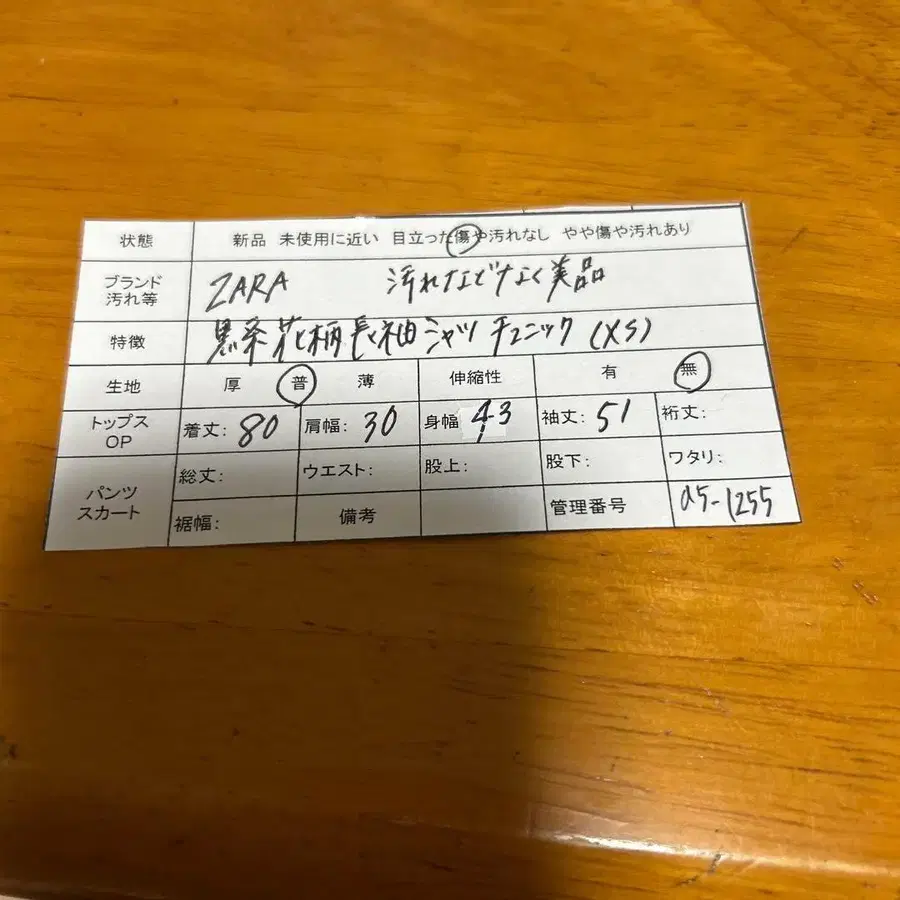 状態 新品 未使用に近い 目立った傷や汚れなし やや傷や汚れあり
ブランド
汚れ等 ZARA 汚れなどなく美品
特徴 黒系花柄長袖シャツチュニック(XS)
生地 厚 普 薄 伸縮性 有 無
トップス
OP 着丈: 80 肩幅: 30 身幅 43 袖丈: 51 裄丈:
パンツ
スカート 総丈: ウエスト: 股上: 股下: ワタリ:
裾幅: 備考 管理番号 a5-1255